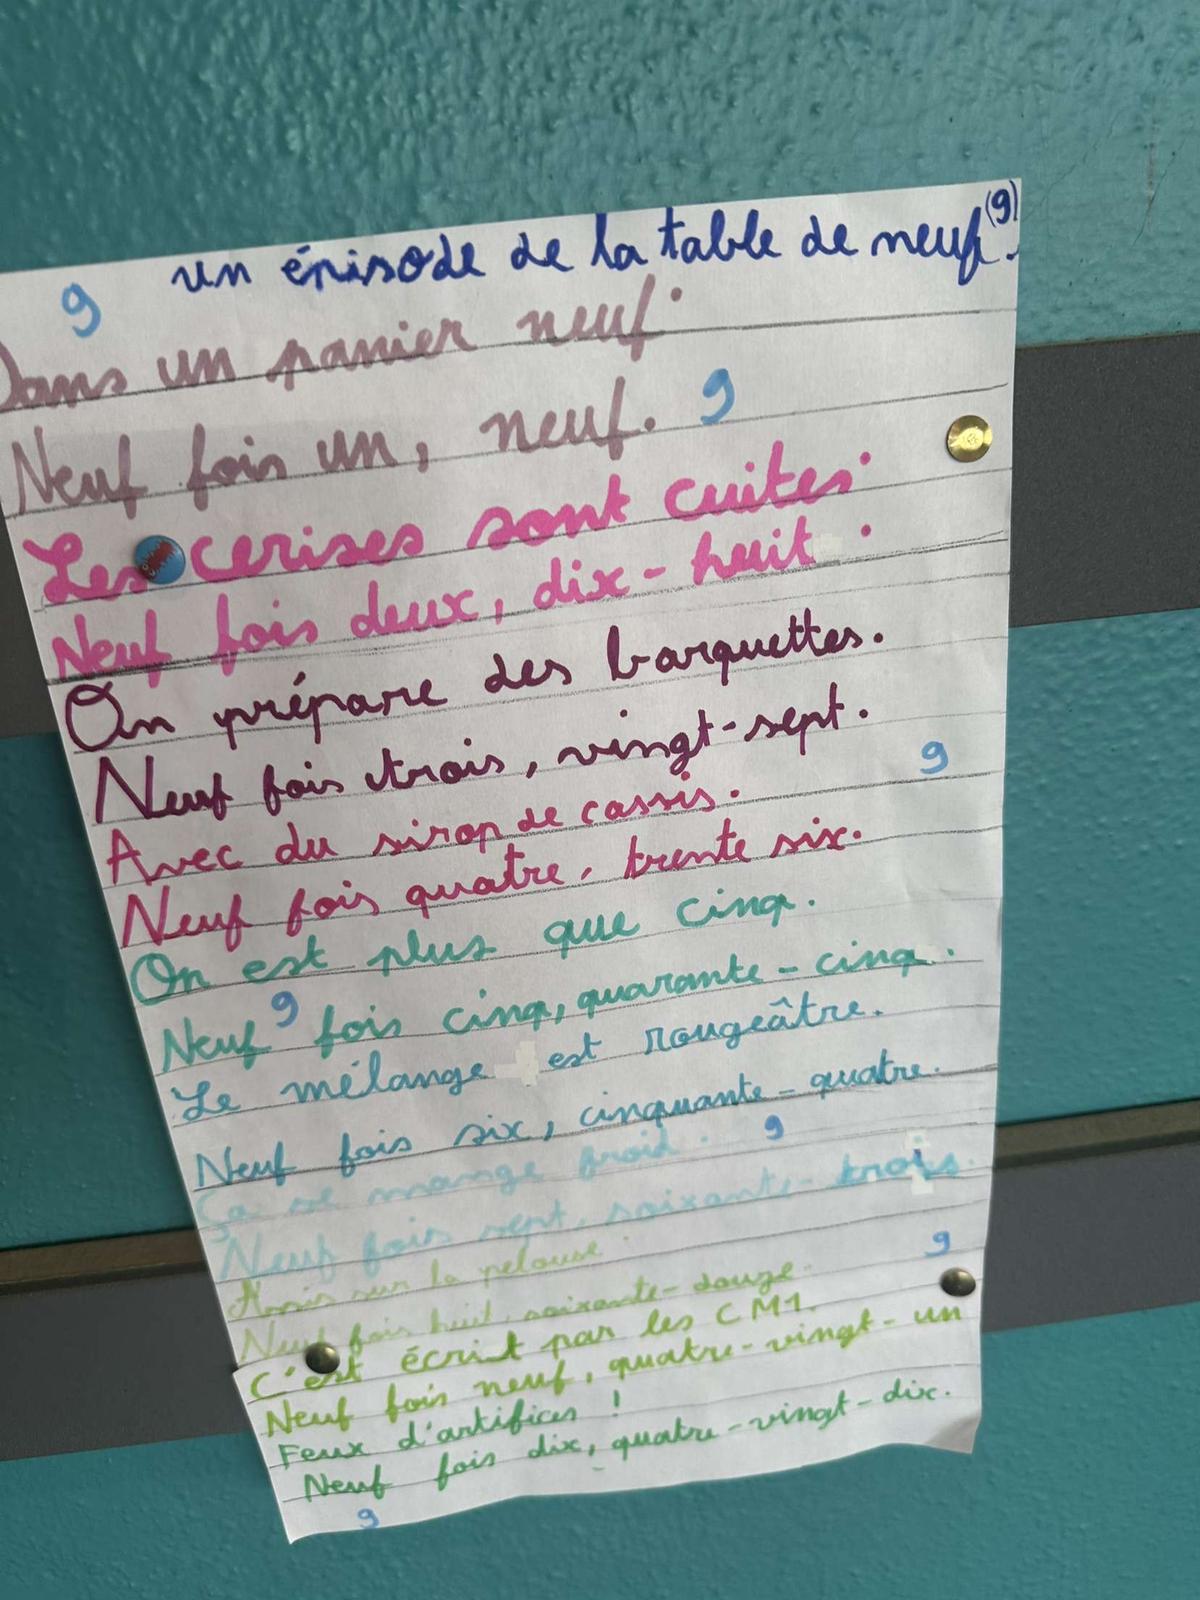 un épisode de la table de neuf (9).
9
Dans un panier neuf.
Neuf fois un, neuf. 9
Les cerises sont cuites.
Neuf fois deux, dix-huit.
On prépare des barquettes.
Neuf fois trois, vingt-sept.
9
Avec du sirop de cassis.
Neuf fois quatre, trente six.
On est plus que cinq.
9
Neuf fois cinq, quarante-cinq.
Le mélange est rougeâtre.
Neuf fois six, cinquante-quatre.
9
Ça se mange froid.
Neuf fois sept, soixante-trois.
Assis sur la pelouse.
9
Neuf fois huit, soixante-douze.
C'est écrit par les CM1.
Neuf fois neuf, quatre-vingt-un
Feux d'artifices !
Neuf fois dix, quatre-vingt-dix.
9